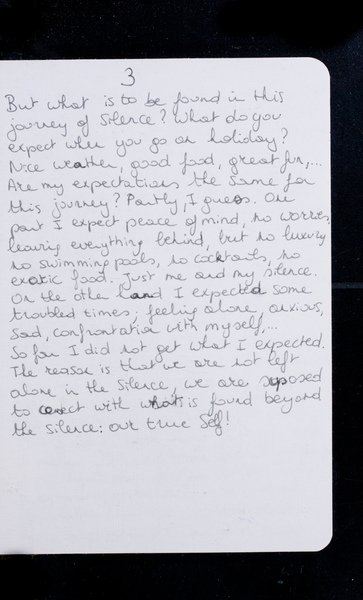 3
But what is to be found in this
journey of silence? What do you
expect when you go on holiday?
Nice weather, good food, great fun,...
Are my expectations the same for
this journey? Partly, I guess. One
part I expect peace of mind, no worries,
leaving everything behind, but no luxury
no swimming pools, no cocktails, no
exotic food. Just me and my silence.
On the other hand I expected some
troubled times; feeling alone, anxious,
sad, confrontation with myself,...
So far I did not get what I expected.
The reason is that we are not left
alone in the silence, we are suposed
to conect with what is found beyond
the silence: our true self!